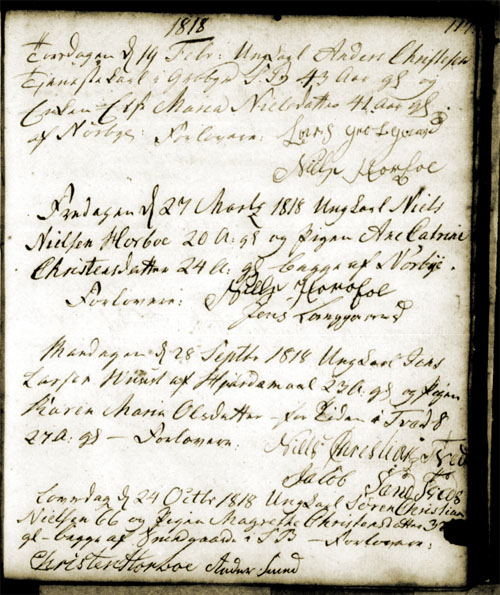 1818
Torsdagen d 19 Febr: Ungkarl Anders Christensen
Tjenestekarl i 43 Aar gl og
Maria Nielsdatter 42 aar gl.
af Nørbye: Forlovere: Lars
Niels Horboe
Fredagen d 27 Marts 1818 Ungkarl Niels
Nielsen Horboe 20 A: gl og Pigen Ane Catrine
Christensdatter 24 A: gl begge af Nørbye.
Forlovere: Niels Horboe
Jens Langgaard
Mandagen d 28 Septbr 1818 Ungkarl Jens
Larsen af Hjardemaal 23 A: gl og Pigen
Karen Maria Olsdatter - for Tiden i
27 A: gl - Forlovere: Niels Christian
Jacob
Løverdag d 24 Octbr 1818 Ungkarl Søren Christian
Nielsen 66 og Pigen Magrethe Christensdatter 37
gl - begge af - Forlovere:
Christen Horboe Anders Smed